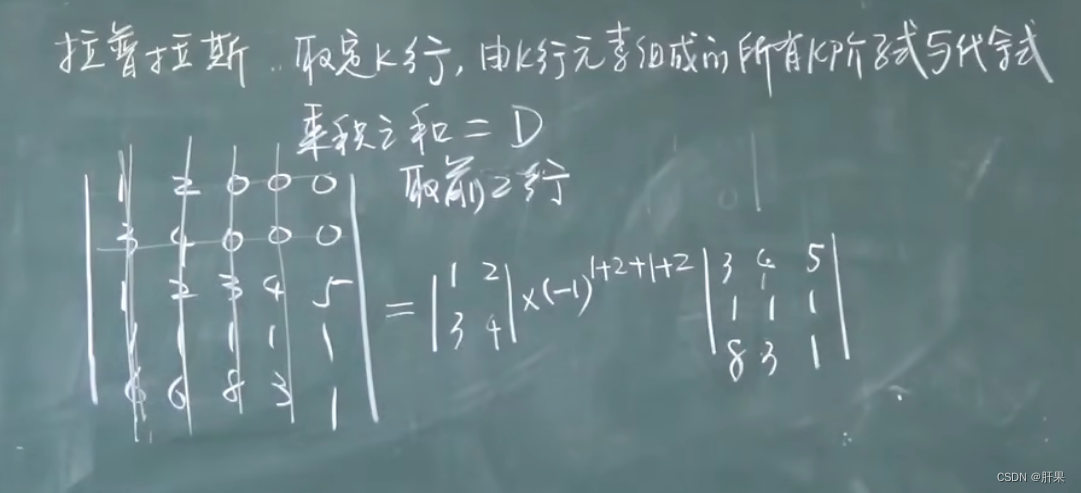 拉普拉斯.. 取定K行,由K行元素组成的所有K阶子式与代余式
乘积之和 = D
取前2行
1 2 0 0 0
3 4 0 0 0
1 2 3 4 5
1 1 1 1 1
6 6 8 3 1
= | 1 2 | ×(-1)^{1+2+1+2} | 3 4 5 |
| 3 4 | | 1 1 1 |
| 8 3 1 |
CSDN @肝果